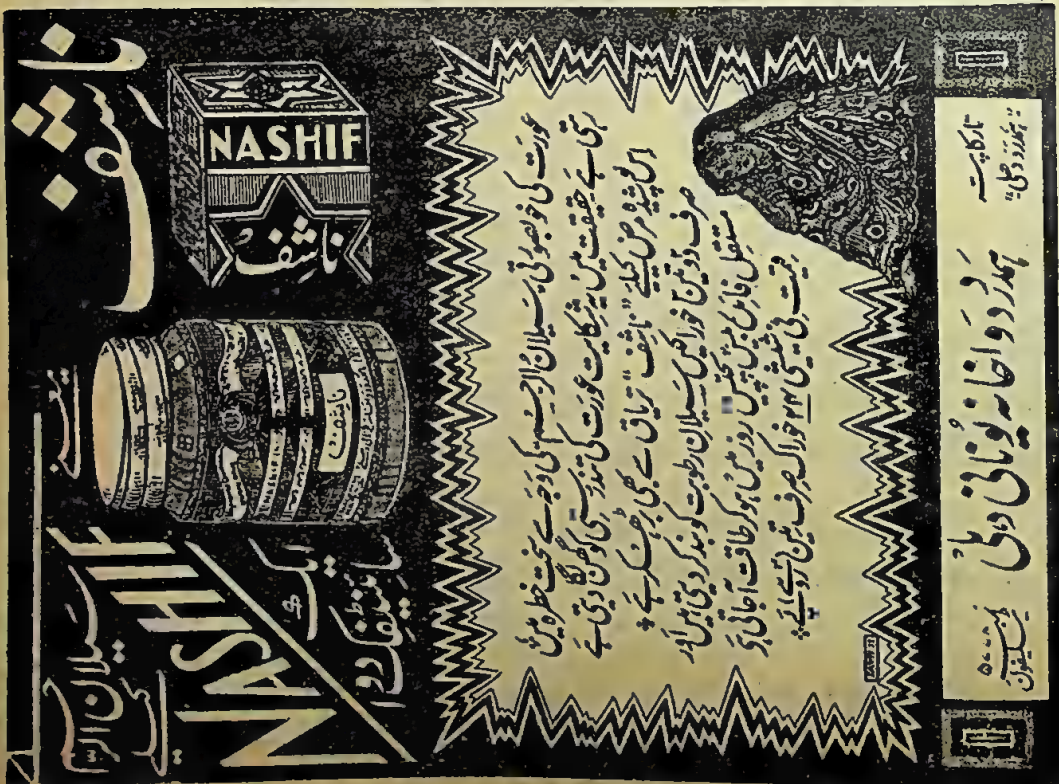 ناشف
NASHIF
ناشف
یعنے
ناشف
NASHIF
سیلان الرحم
کی
ایک
سائینٹفک دوا
عورت کی خوبصورتی سیلان الرحم کی وجہ سے سخت خطرہ میں
رہتی ہے حقیقت میں یہ شکایت عورت کی تندرستی کو گھن لگا دیتی ہے
اس پوشیدہ مرض کیلئے "ناشف" تریاق سے بھی بڑھ کر ہے
صرف دو تین خوراکیں سیلان رطوبت کو بند کر دیتی ہیں اور
مستقل فائدہ بیس پچیس روز میں ہو کر طاقت آجاتی ہے
قیمت فی شیشی ۴۲ خوراک صرف تین روپے
تار کا پتہ
"ہمدرد دہلی"
ہمدرد دواخانہ یونانی دہلی
ٹیلیفون